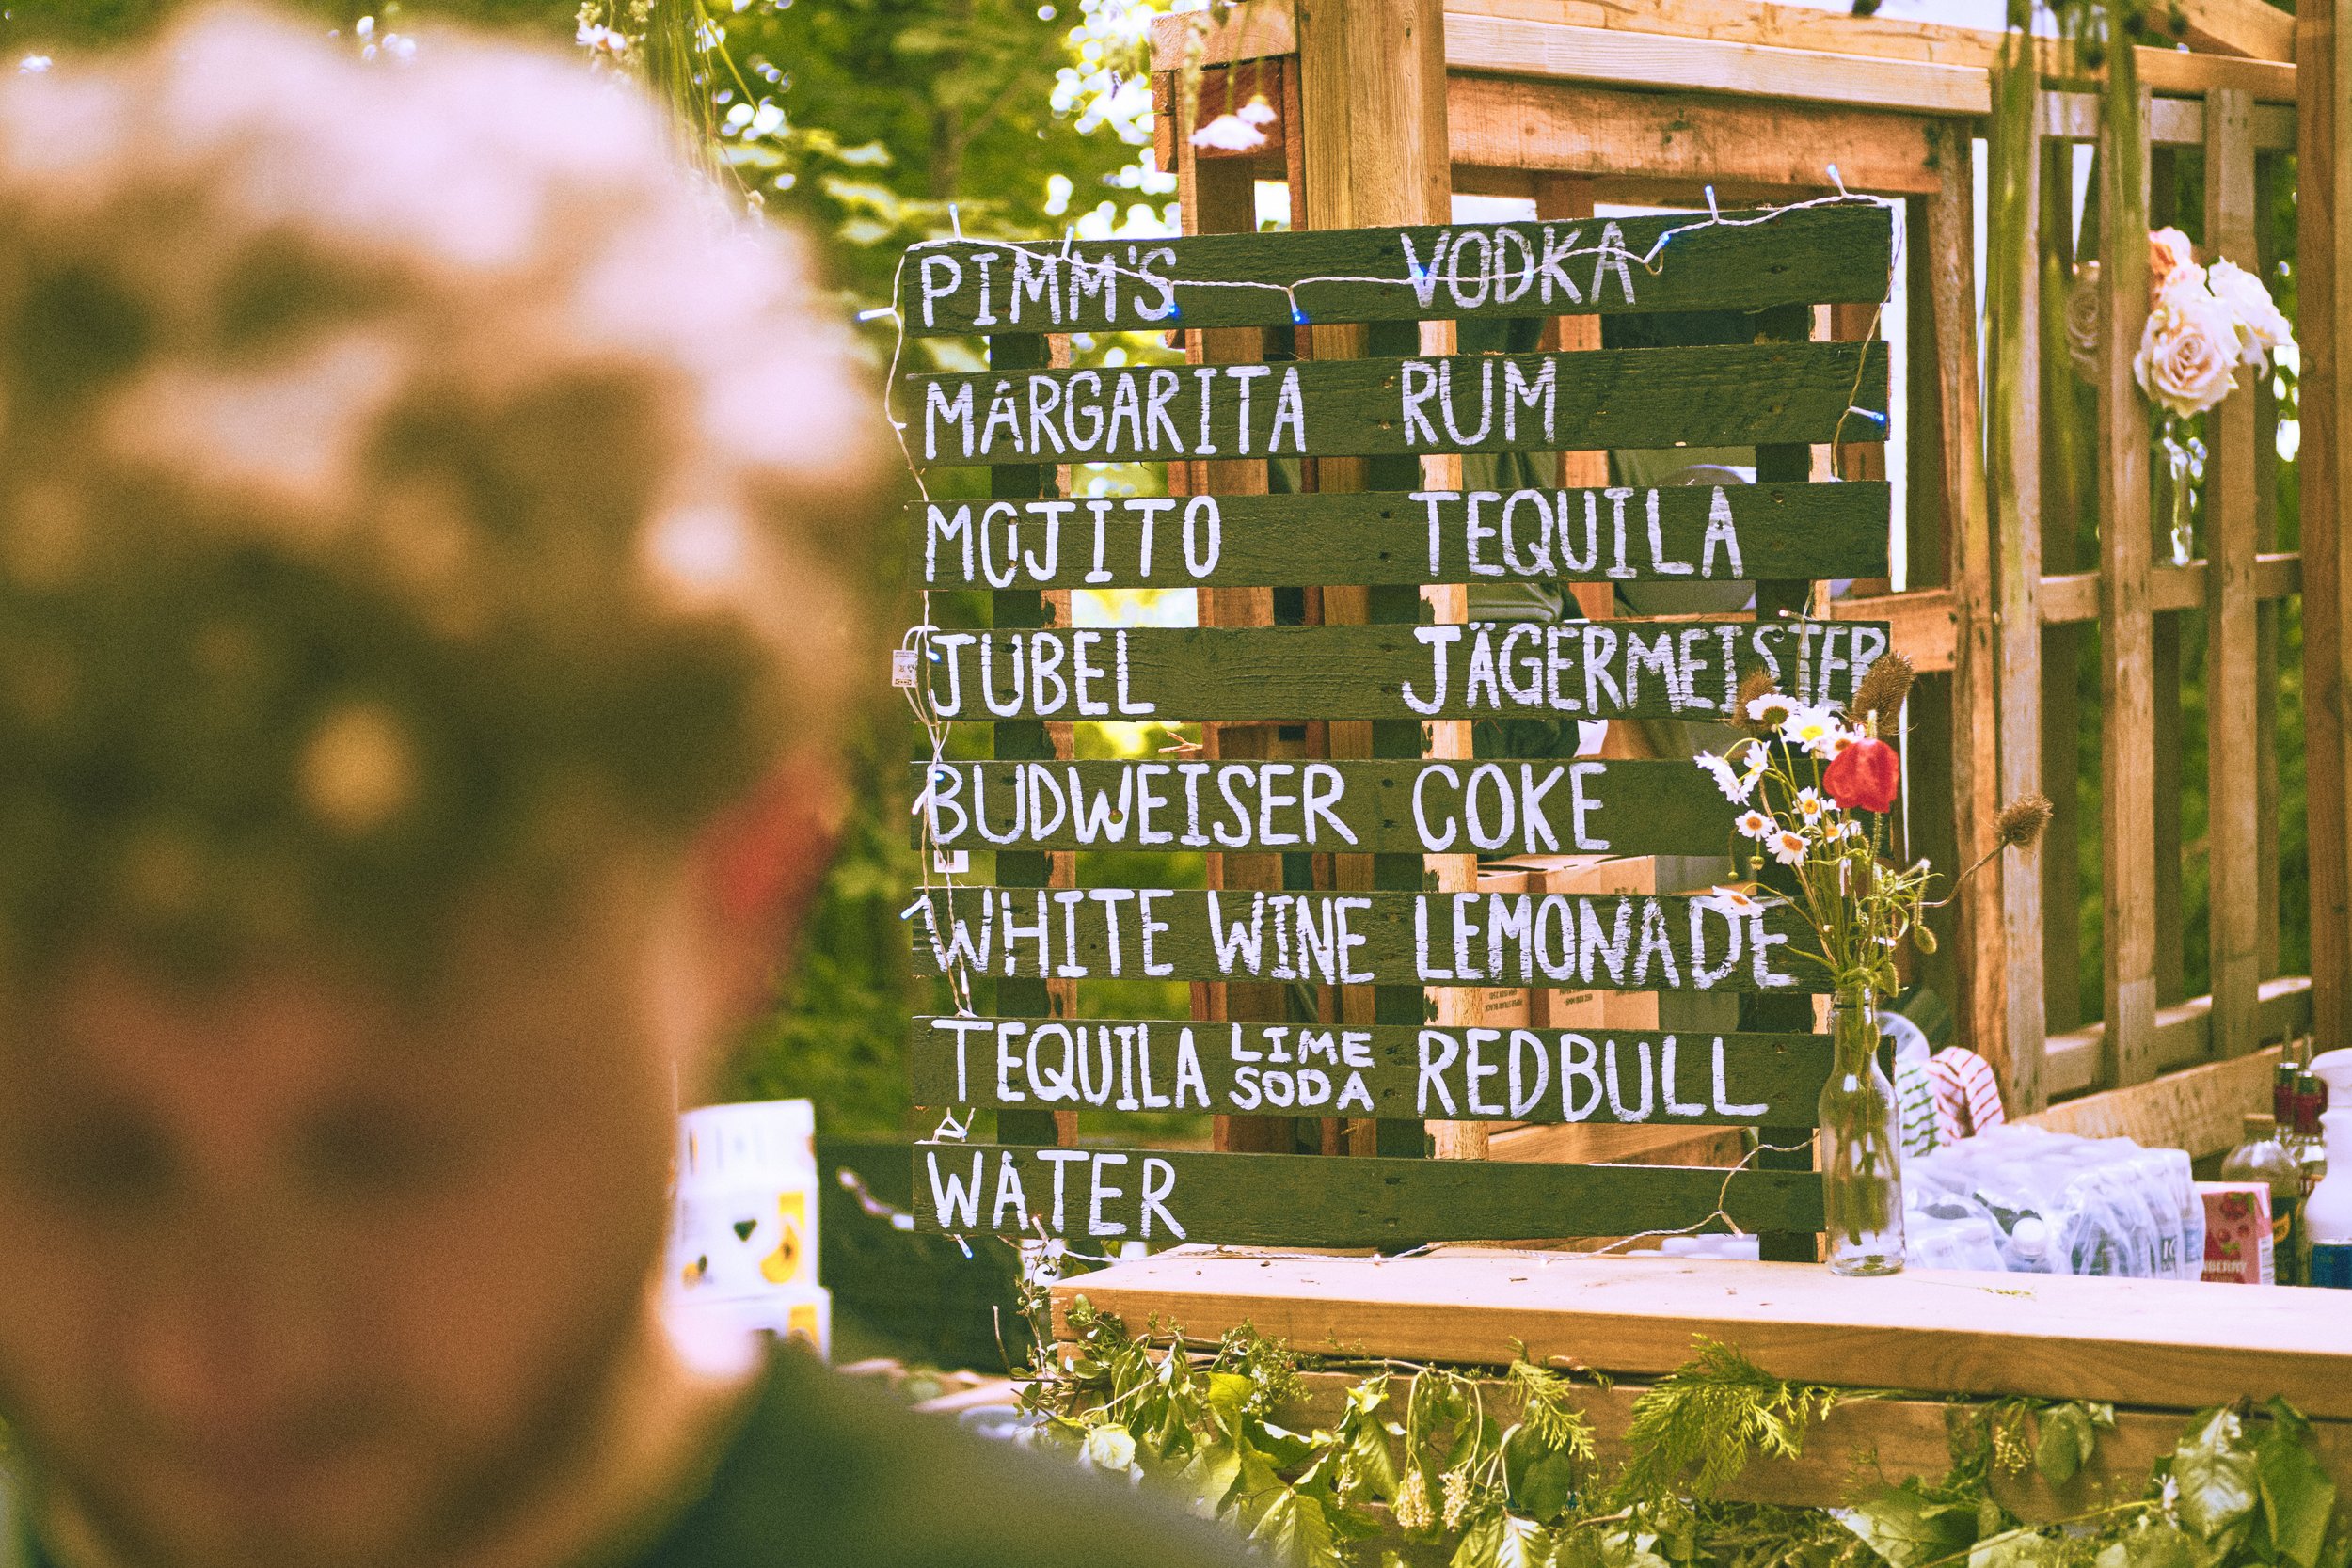 PIMM'S VODKA
MARGARITA RUM
MOJITO TEQUILA
JUBEL JÄGERMEISTER
BUDWEISER COKE
WHITE WINE LEMONADE
TEQUILA LIME SODA REDBULL
WATER